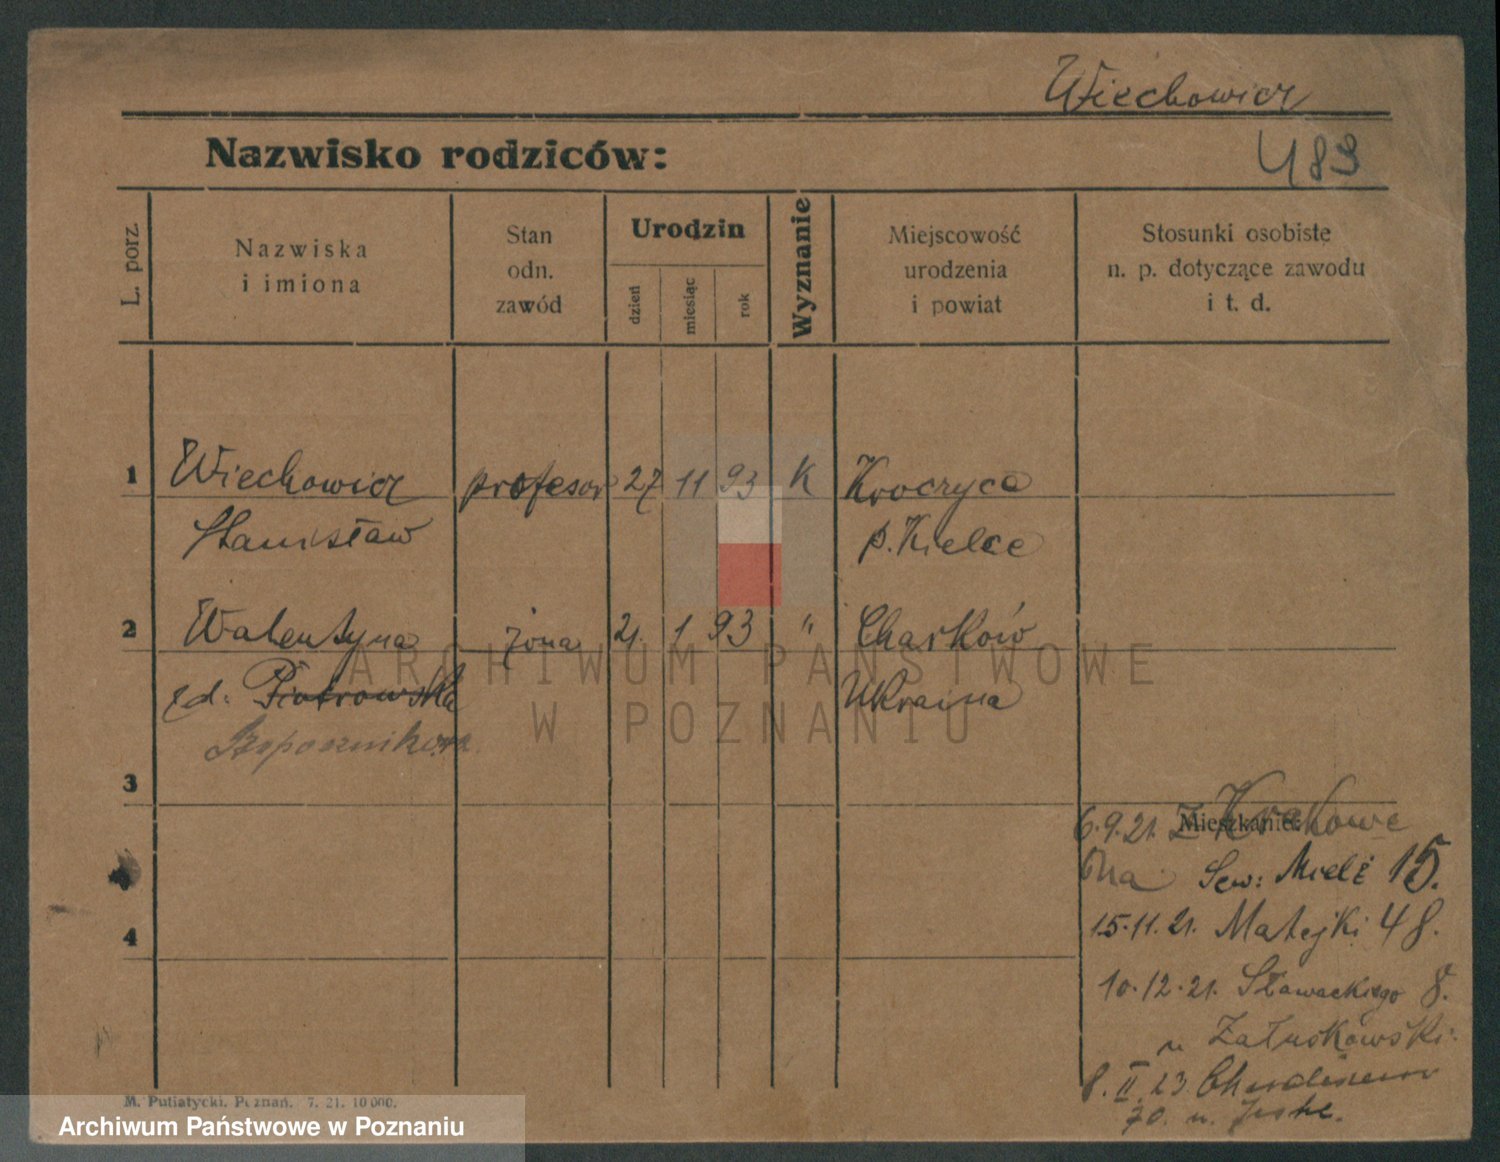 Wiechowicz
483
Nazwisko rodziców:
L. porz.
Nazwiska
i imiona
Stan
odn.
zawód
Urodzin
dzień
miesiąc
rok
Wyznanie
Miejscowość
urodzenia
i powiat
Stosunki osobiste
n. p. dotyczące zawodu
i t. d.
1 Wiechowicz profesor 27 11 93 K Kroczyce
Stanisław p. Kielce
2 Walentyna żona 21. 1 93 " Charków
zd: Piotrowska Ukraina
3
6.9.21. Z Krakowa
Mieszkanie:
Ona Sew: Mielż 15.
15.11.21. Matejki 48.
4
10.12.21. Słowackiego 8.
u Załuskowski
8.II.23.
70. u.
M. Putiatycki, Poznań. 7. 21. 10 000.
ARCHIWUM PAŃSTWOWE
W POZNANIU
Archiwum Państwowe w Poznaniu